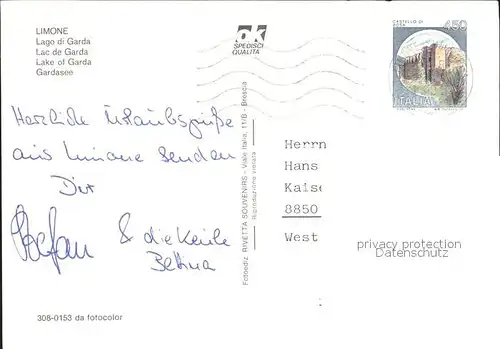 LIMONE
Lago di Garda
Lac de Garda
Lake of Garda
Gardasee
ok
SPEDISCI
QUALITÀ
CASTELLO DI
ROSA
450
ITALIA
Herzliche Urlaubsgrüße
aus Limone senden
Dir
Stefan & die Keule
Bettina
Fotoediz. RIVETTA SOUVENIRS - Viale Italia, 11/B - Brescia
Riproduzione vietata
Herrn
Hans
Kaise
8850
West
privacy protection
Datenschutz
308-0153 da fotocolor